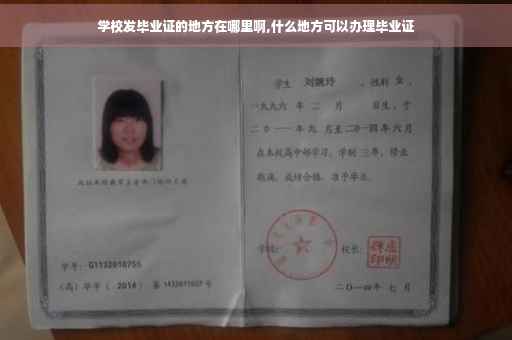 学校发毕业证的地方在哪里啊,什么地方可以办理毕业证
学生 刘婉玲 ，性别 女 ，
一九九六 年 二 月 日生，于
二0一一 年 九 月至 二0一四 年 六 月
在本校高中部学习，学制 三年，修业
期满，成绩合格，准予毕业。
学号： G1132010755
(高) 毕字 ( 2014 ) 第 1432011027 号
学校： 校长：
二〇一四年 七 月